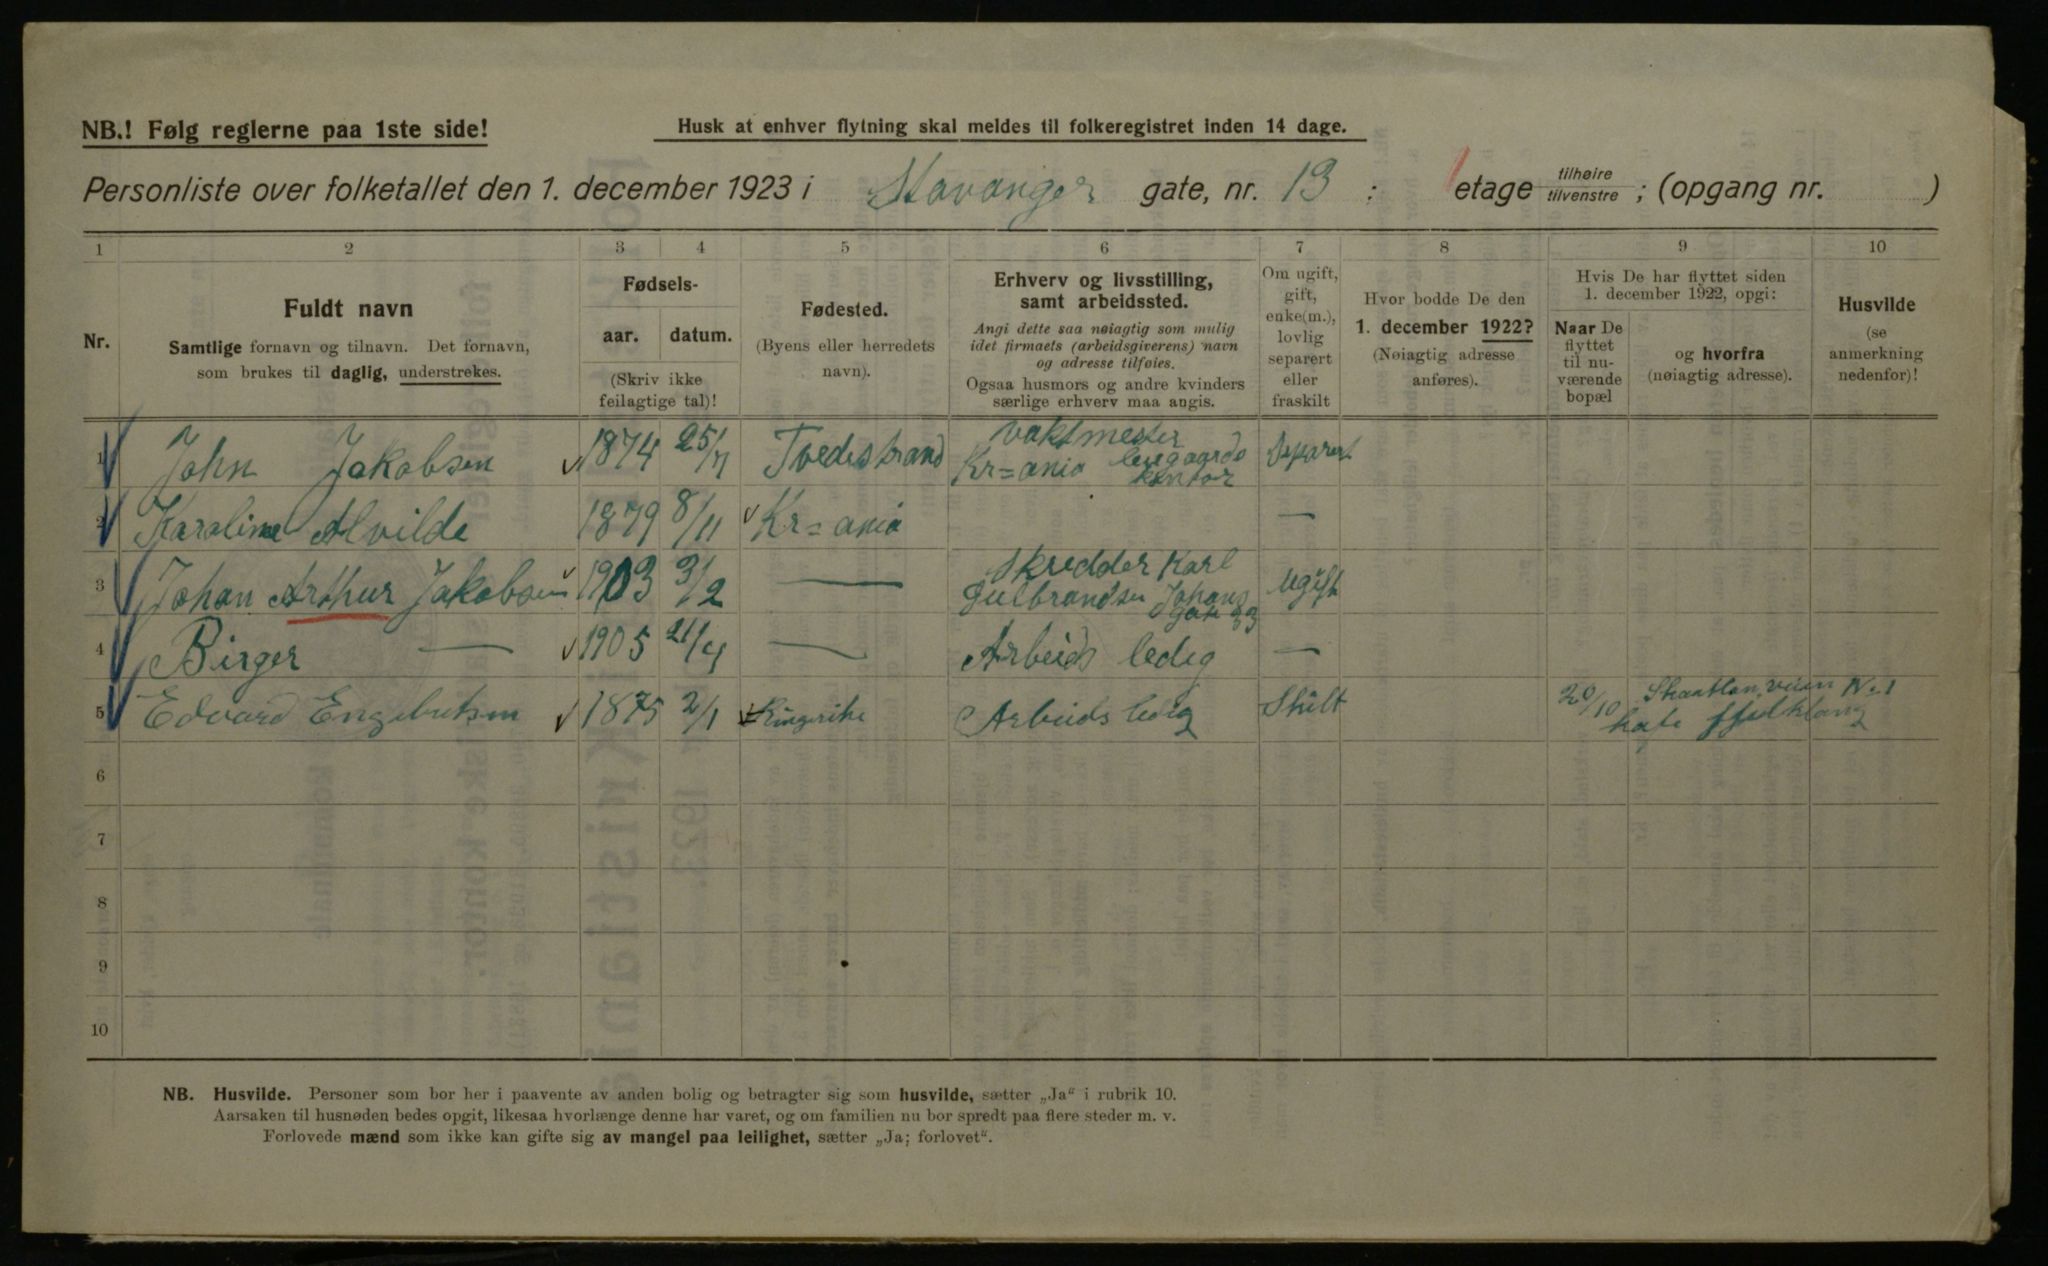 NB.! Følg reglerne paa 1ste side!
Husk at enhver flytning skal meldes til folkeregistret inden 14 dage.
Personliste over folketallet den 1. december 1923 i Stavanger gate, nr. 13 : 1 etage tilhøire tilvenstre ; (opgang nr. )
1 2 3 4 5 6 7 8 9 10
Nr.
Fuldt navn
Samtlige fornavn og tilnavn. Det fornavn,
som brukes til daglig, understrekes.
Fødsels-
aar. datum.
(Skriv ikke
feilagtige tal)!
Fødested.
(Byens eller herredets
navn).
Erhverv og livsstilling,
samt arbeidssted.
Angi dette saa nøiagtig som mulig
idet firmaets (arbeidsgiverens) navn
og adresse tilføies.
Ogsaa husmors og andre kvinders
særlige erhverv maa angis.
Om ugift,
gift,
enke(m.),
lovlig
separert
eller
fraskilt
Hvor bodde De den
1. december 1922?
(Nøiagtig adresse
anføres).
Hvis De har flyttet siden
1. december 1922, opgi:
Naar De
flyttet
til nu-
værende
bopæl
og hvorfra
(nøiagtig adresse).
Husvilde
(se
anmerkning
nedenfor)!
1 John Jakobsen 1874 25/7 Tvedestrand vaktmester Kr=ania leiegaards kontor Separert
2 Karoline Alvilde 1879 8/11 Kr=ania —
3 Johan Arthur Jakobsen 1903 3/2 — Skredder Karl Gulbrandsen Johans gate 33 Ugift
4 Birger — 1905 21/4 — Arbeids ledig —
5 Edvard Engebretsen 1875 2/1 Ringerike Arbeids ledig Skilt 20/10 No 1
6
7
8
9
10
NB. Husvilde. Personer som bor her i paavente av anden bolig og betragter sig som husvilde, sætter „Ja“ i rubrik 10.
Aarsaken til husnøden bedes opgit, likesaa hvorlænge denne har varet, og om familien nu bor spredt paa flere steder m. v.
Forlovede mænd som ikke kan gifte sig av mangel paa leilighet, sætter „Ja; forlovet“.